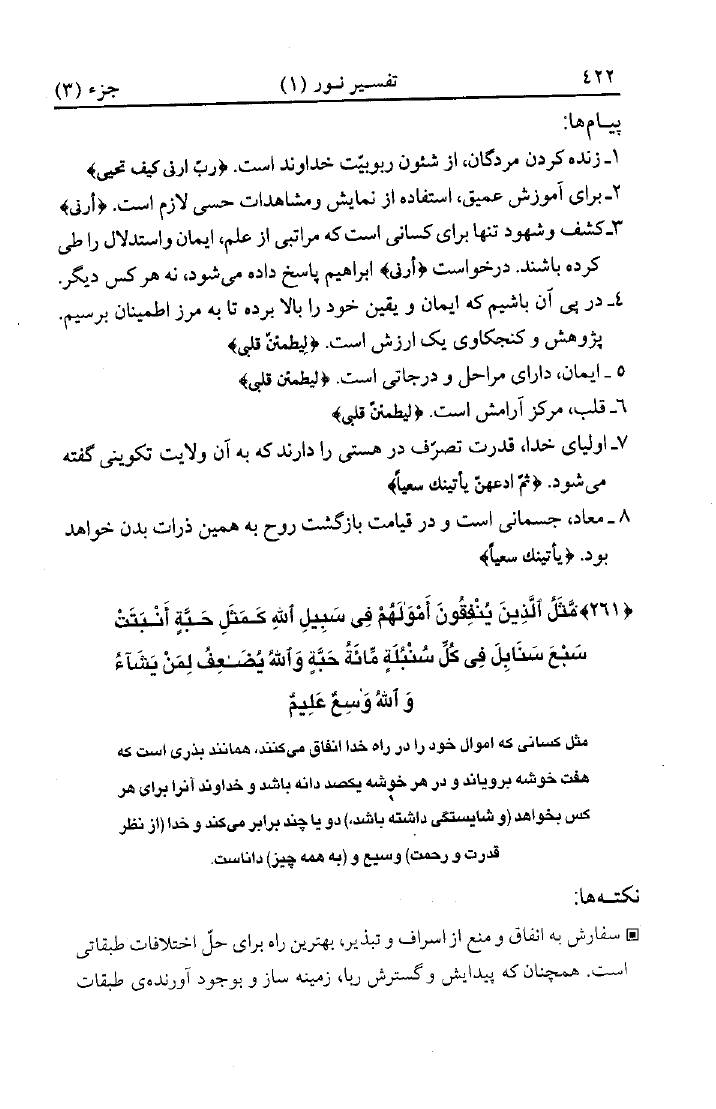 ٤٢٢ تفسیر نـور (۱) جزء (۳)
پیـام‌ها:
۱ـ زنده کردن مردگان، از شئون ربوبیّت خداوند است. ﴿ربّ ارنی کیف تحیی﴾
۲ـ برای آموزش عمیق، استفاده از نمایش ومشاهدات حسی لازم است. ﴿أرنی﴾
۳ـ کشف وشهود تنها برای کسانی است که مراتبی از علم، ایمان واستدلال را طی
کرده باشند. درخواست ﴿أرنی﴾ ابراهیم پاسخ داده می‌شود، نه هر کس دیگر.
٤ـ در پی آن باشیم که ایمان و یقین خود را بالا برده تا به مرز اطمینان برسیم.
پژوهش و کنجکاوی یک ارزش است. ﴿لِیطمئنّ قلبی﴾
٥ ـ ایمان، دارای مراحل و درجاتی است. ﴿لیطمئن قلبی﴾
٦ـ قلب، مرکز آرامش است. ﴿لیطمئنّ قلبی﴾
۷ـ اولیای خدا، قدرت تصرّف در هستی را دارند که به آن ولایت تکوینی گفته
می‌شود. ﴿ثمّ ادعهنّ یأتینك سعیاً﴾
۸ ـ معاد، جسمانی است و در قیامت بازگشت روح به همین ذرات بدن خواهد
بود. ﴿یأتینك سعیاً﴾
﴿۲٦۱﴾ مَّثَلُ ٱلَّذِينَ يُنْفِقُونَ أَمْوَٰلَهُمْ فِى سَبِيلِ ٱللهِ كَـمَثَلِ حَـبَّةٍ أَنْـبَتَتْ
سَبْعَ سَنَابِلَ فِى كُلِّ سُنْبُلَةٍ مِّائَةُ حَبَّةٍ وَٱللهُ يُضَـٰعِفُ لِمَنْ يَشَآءُ
وَ ٱللهُ وَٰسِعٌ عَلِيمٌ
مثل کسانی که اموال خود را در راه خدا انفاق می‌کنند، همانند بذری است که
هفت خوشه برویاند و در هر خوشه یکصد دانه باشد و خداوند آنرا برای هر
کس بخواهد (و شایستگی داشته باشد،) دو یا چند برابر می‌کند و خدا (از نظر
قدرت و رحمت) وسیع و (به همه چیز) داناست.
نکتـه‌ها:
▣ سفارش به انفاق و منع از اسراف و تبذیر، بهترین راه برای حلّ اختلافات طبقاتی
است. همچنان که پیدایش و گسترش ربا، زمینه ساز و بوجود آورنده‌ی طبقات